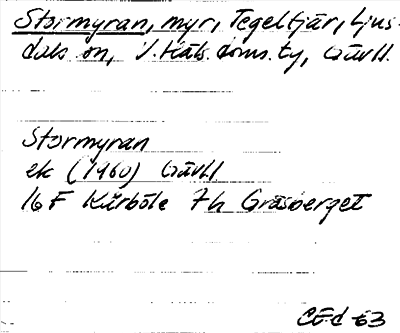 Stormyran, myr, Tegeltjär, Ljus-
dals sn, V. Häls. doms. ty, Gävl.
Stormyran
ek (1960) Gävl
16 F Kårböle 7h Gräsberget
CEd 63